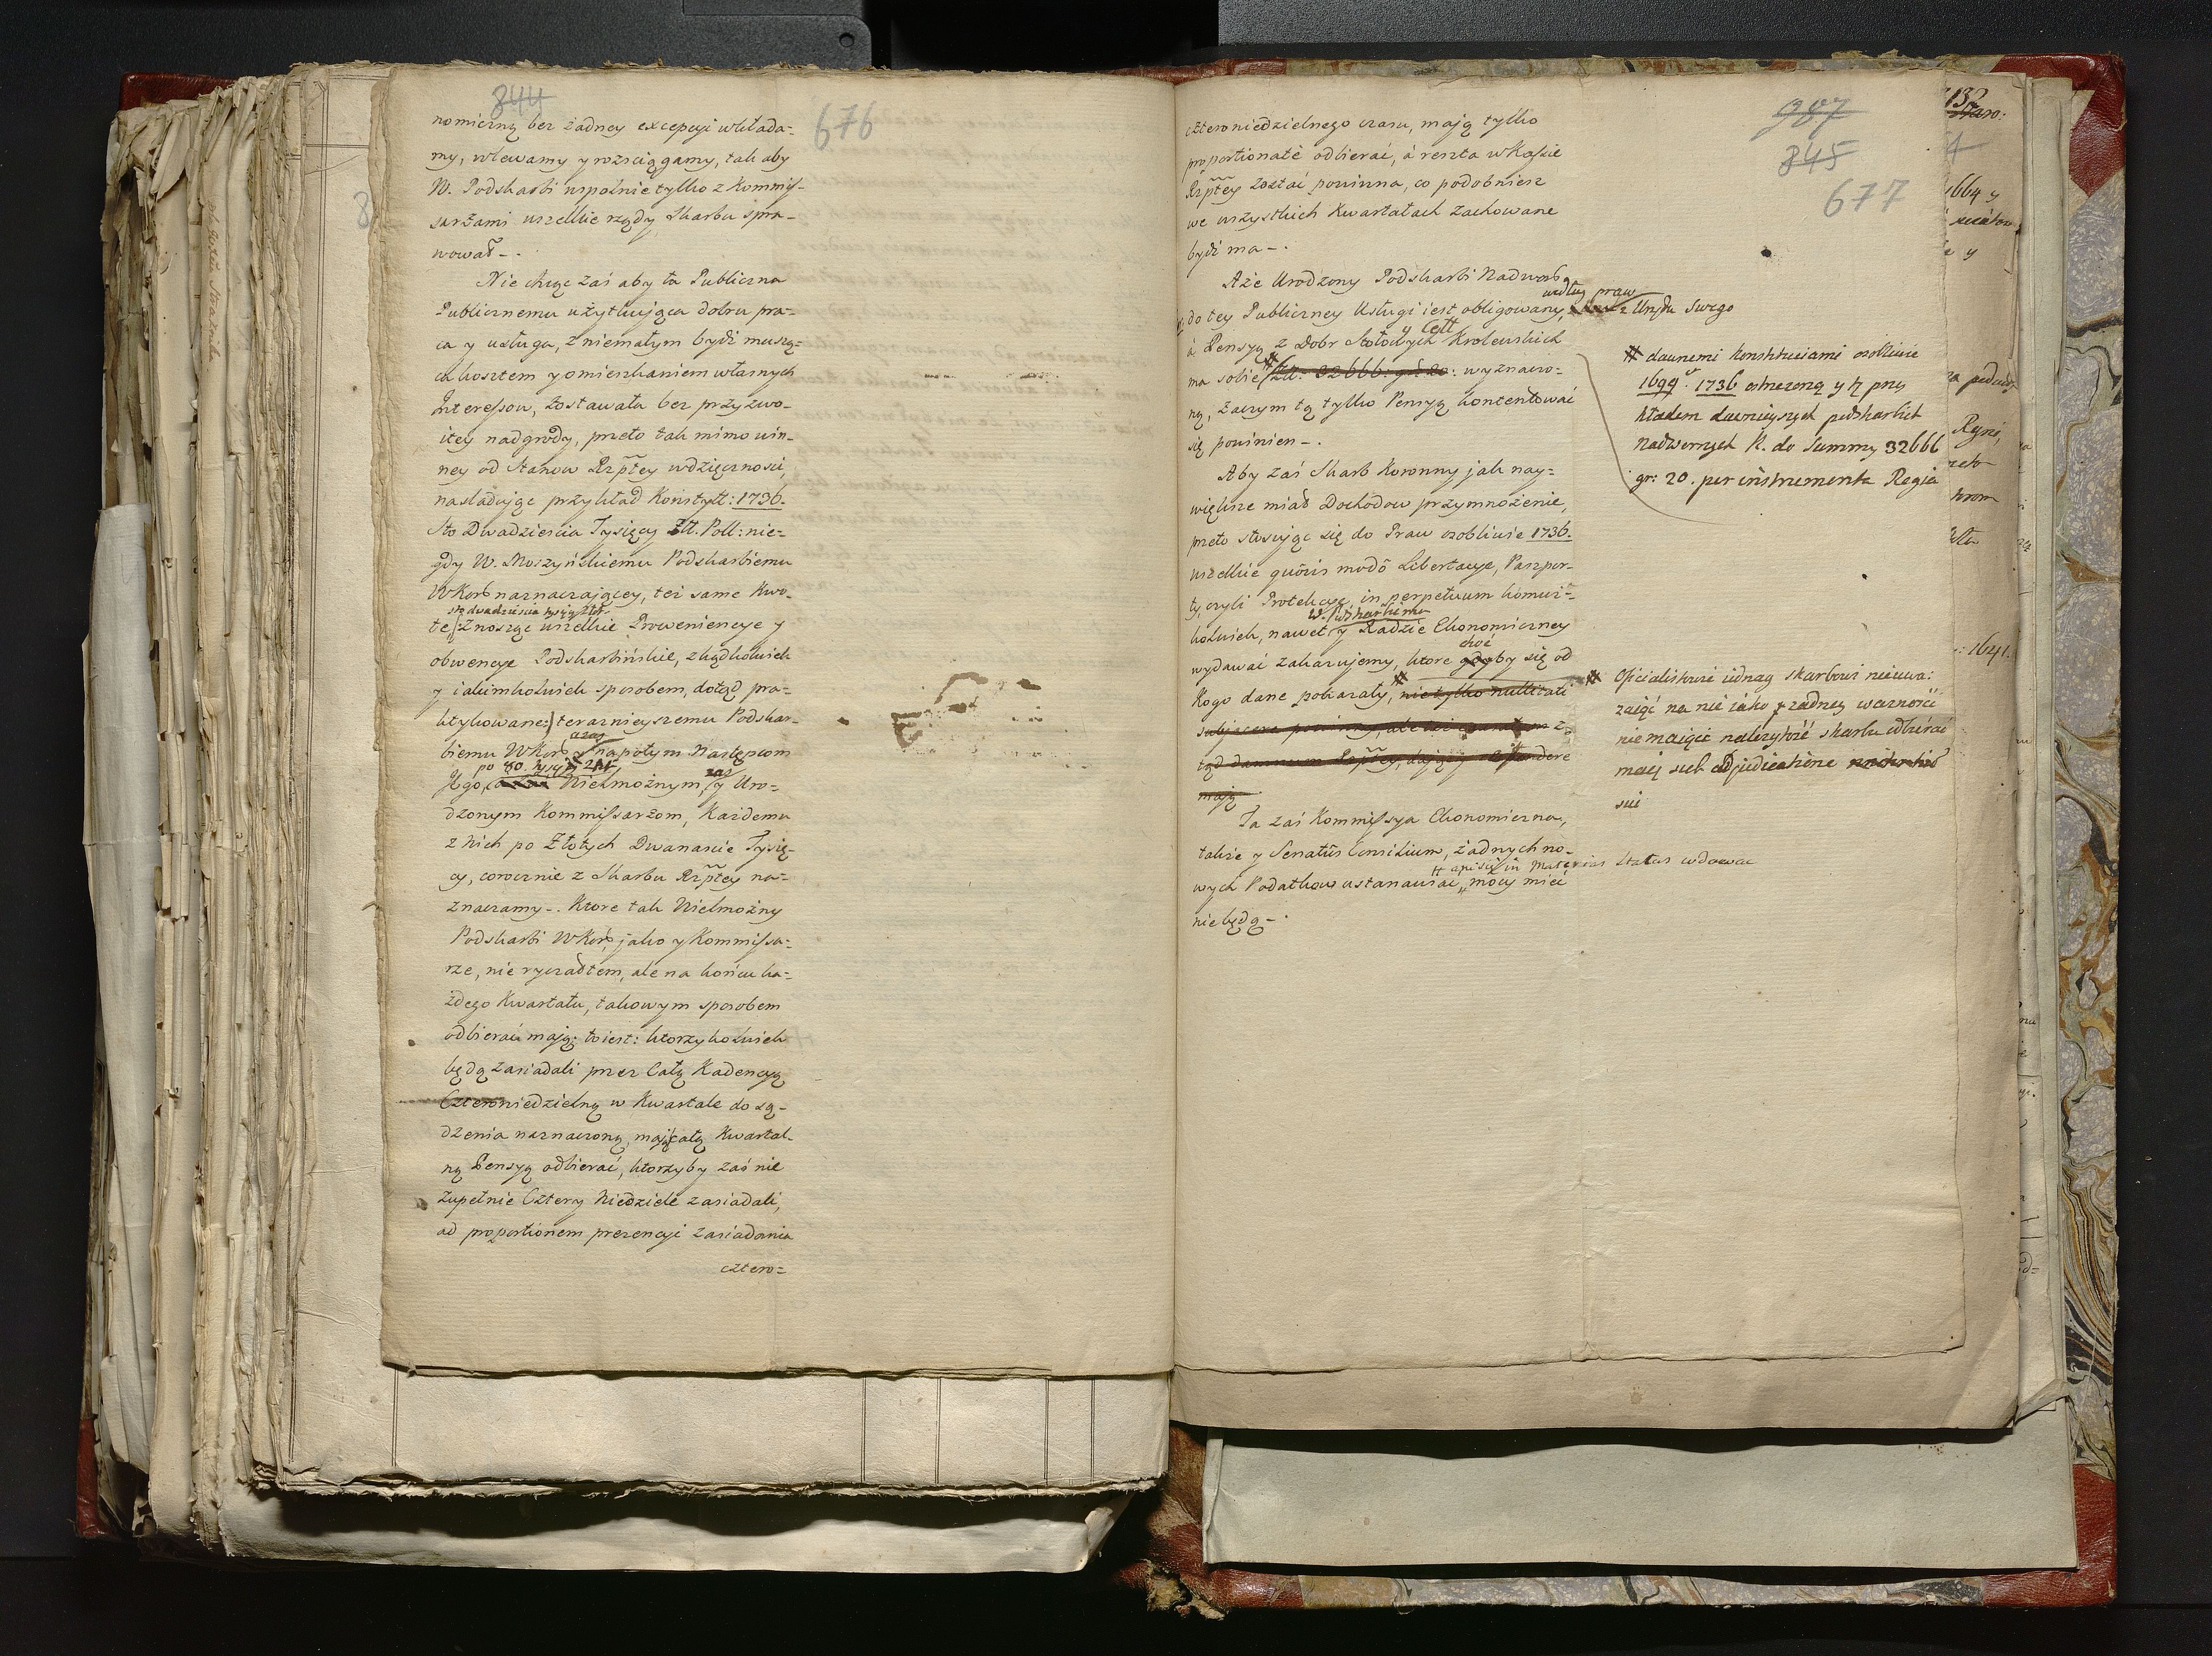 844
676
nomiczną bez żadney excepcyi wkłada=
my, wlewamy y rozsciągamy, tak aby
W. Podskarbi wspolnie tylko z Kommis-
sarzami wszelkie rządy Skarbu spra-
wował -.
Nie chcąc zaś aby ta Publiczna
Publicznemu użytkująca dobru pra=
ca y usługa, z niemałym bydź muszą=
ca kosztem y omieszkaniem własnych
Interessow, zostawała bez przyzwo-
itey nadgrody, przeto tak mimo win-
ney od Stanow Rzptey wdzięcznosci,
nasladując przykład Konstytt: 1736.
Sto Dwadziescia Tysięcy Złł. Poll: nie=
gdy W. Moszyńskiemu Podskarbiemu
WKor: naznaczającey, też same Kwo-
sto dwadziescia tysięcy Złł.
te/: Znosząc wszelkie Prowenieńcye y
obwencye Podskarbińskie, zkądkolwiek
y iakimkolwiek sposobem, dotąd pra=
ktykowane:/ teraznieyszemu Podskar-
biemu WKor: napotym Następcom
po 80. tysięcy Złł
Jego, Wielmożnym, zaś y Uro=
dzonym Kommissarzom, Każdemu
z Nich po Złotych Dwanascie Tysię-
cy, corocznie z Skarbu Rzptey na=
znaczamy -. Ktore tak Wielmożny
Podskarbi WKor: jako y Kommissa=
rze, nie ryczałtem, ale na końcu ka=
żdego Kwartału, takowym sposobem
odbierać mają; to iest: ktorzykolwiek
będą zasiadali przez Całą Kadencyą
Czteroniedzielną w Kwartale do są-
dzenia naznaczoną, mają całą Kwartal-
ną Pensyą odbierać, ktorzyby zaś nie
zupełnie Cztery Niedziele zasiadali,
ad proportionem prezencyi zasiadania
cztero=
987
845
677
czteroniedzielnego czasu, mają tylko
proportionatè odbierać, à reszta w Kassie
Rzptey zostać powinna, co podobniesz
we wszystkich Kwartałach zachowane
bydź ma -.
Aże Urodzony Podskarbi Nadworny
według praw
do tey Publiczney Usługi iest obligowany, z Urzędu swego
y Cełł
à Pensyą z Dobr Stołowych Krolewskich
ma sobie # Złł: 32666: gr: 20: wyznaczo-
ną, zaczym tą tylko Pensyą kontentować
się powinien -.
# dawnemi konstytuciami osobliwie
1694. 1736 obmezoną y tż przy
kładem dawnieyszych podskarbich
Nadwornych K. do Summy 32666
gr: 20. per instrumenta Regia
Aby zaś Skarb Koronny jak nay=
większe miał Dochodow przymnożenie,
przeto stosując się do Praw osobliwie 1736.
wszelkie quōvis modō Libertacye, Paszpor-
ty, czyli Protekcye in perpetuum komuż-
W. Podskarbiemu
kolwiek, nawet y Radzie Ekonomiczney
choć
wydawać zakazujemy, ktore gdyby się od
Kogo dane pokazały, # nie tylko nullitati
subjacere powinny, ale też
tąd damnum Rzptey, dający respondere
mają
# Oficialistowie iednag skarbowi nieuwa:
zaiąć na nie iako żadney wazności
nie maiącie nalezytość skarbu odbierać
maią sub
Ta zaś Kommissya Ekonomiczna,
także y Senatûs Consilium, żadnych no-
in Materias Status wdawac
wych Podatkow ustanawiać, mocy mieć
nie będą -.